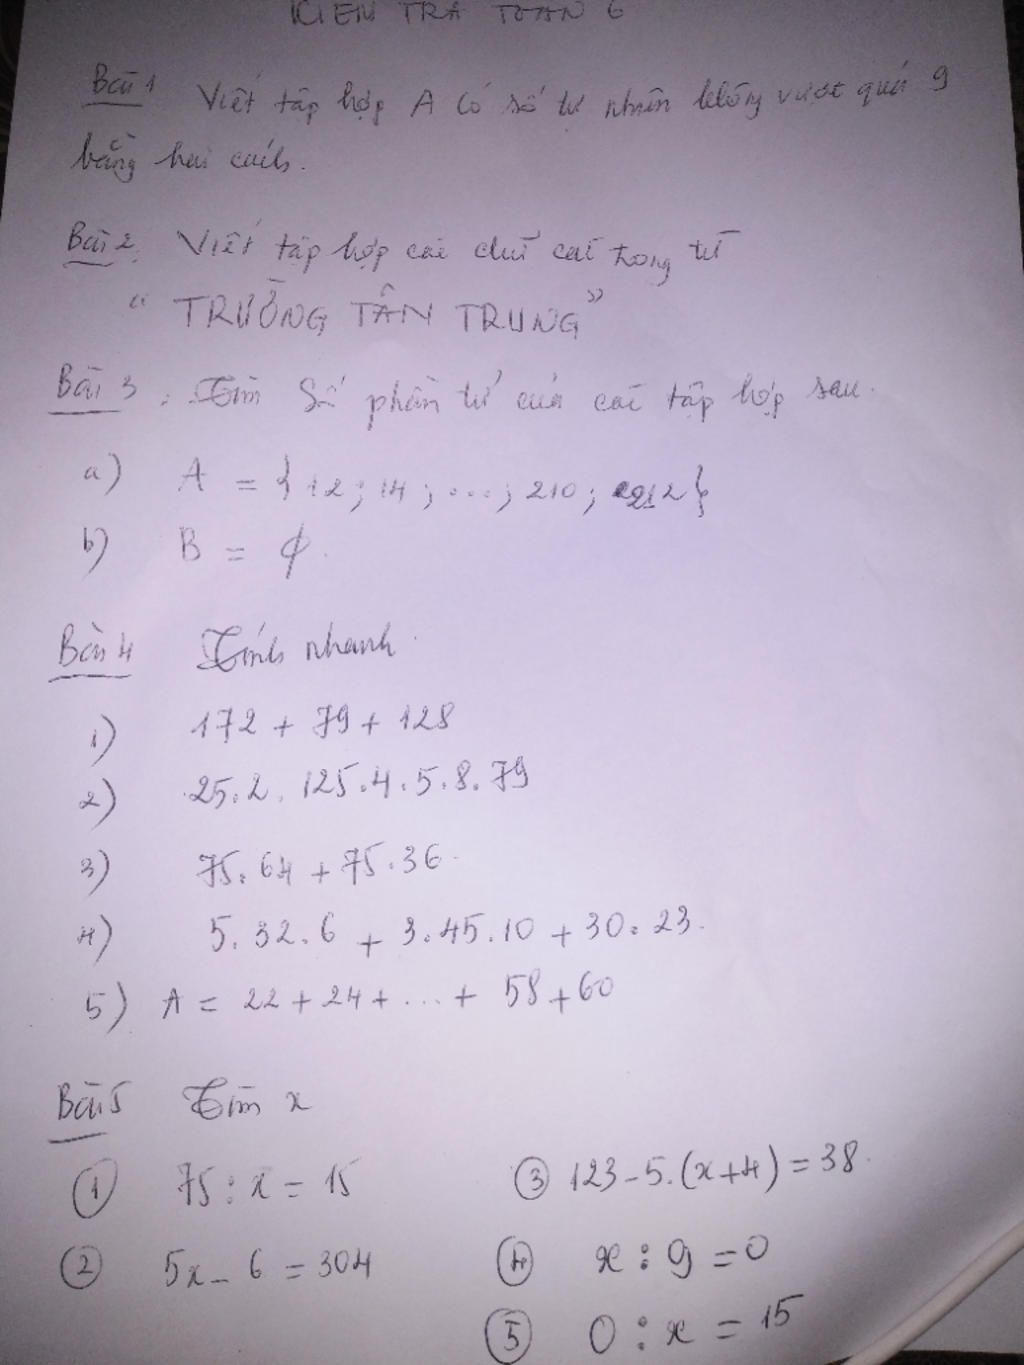 KIỂM TRA TOÁN 6
Bài 1 Viết tập hợp A có số tự nhiên không vượt quá 9
bằng hai cách.
Bài 2. Viết tập hợp các chữ cái trong từ
“TRƯỜNG TÂN TRUNG”
Bài 3. Tìm Số phần tử của các tập hợp sau.
a) A = {12; 14; ...; 210; 212}
b) B = ϕ.
Bài 4 Tính nhanh.
1) 172 + 79 + 128
2) 25.2.125.4.5.8.79
3) 75.64 + 75.36.
4) 5.32.6 + 3.45.10 + 30.23.
5) A = 22 + 24 + ... + 58 + 60
Bài 5 Tìm x
① 75 : x = 15 ③ 123 - 5.(x+4) = 38.
② 5x - 6 = 304 ④ x : 9 = 0
⑤ 0 : x = 15